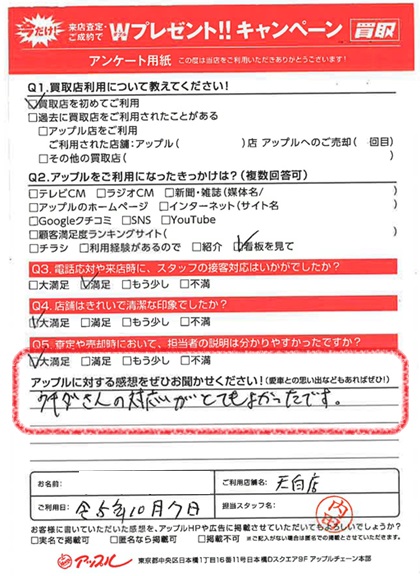 うだけ!
来店査定・
ご成約で
Wプレゼント!!キャンペーン
買取
アンケート用紙 この度は当店をご利用いただきありがとうございます!
Q1.買取店利用について教えてください!
□買取店を初めてご利用
□過去に買取店をご利用されたことがある
□アップル店をご利用
ご利用された店舗:アップル( )店 アップルへのご売却( 回目)
□その他の買取店( )
Q2.アップルをご利用になったきっかけは?(複数回答可)
□テレビCM □ラジオCM □新聞・雑誌(媒体名/ )
□アップルのホームページ □インターネット(サイト名 )
□Googleクチコミ □SNS □YouTube
□顧客満足度ランキングサイト( )
□チラシ □利用経験があるので □紹介 □看板を見て
Q3.電話応対や来店時に、スタッフの接客対応はいかがでしたか?
□大満足 □満足 □もう少し □不満
Q4.店舗はきれいで清潔な印象でしたか?
□大満足 □満足 □もう少し □不満
Q5.査定や売却時において、担当者の説明は分かりやすかったですか?
□大満足 □満足 □もう少し □不満
アップルに対する感想をぜひお聞かせください!(愛車との思い出などもあればぜひ!)
ウチダさんの対応がとてもよかったです。
お名前: ご利用店舗名: 天白店
ご利用日: 令5年10月7日 担当スタッフ名: 内田
お客様に書いていただいた感想を、アップルHPや広告に掲載させていただいてもよろしいでしょうか?
□実名で掲載可 □匿名なら掲載可 □掲載不可 ※ご記入がない場合は匿名での掲載とさせていただきます。
アップル 東京都中央区日本橋1丁目16番11号日本橋Dスクエア9F アップルチェーン本部